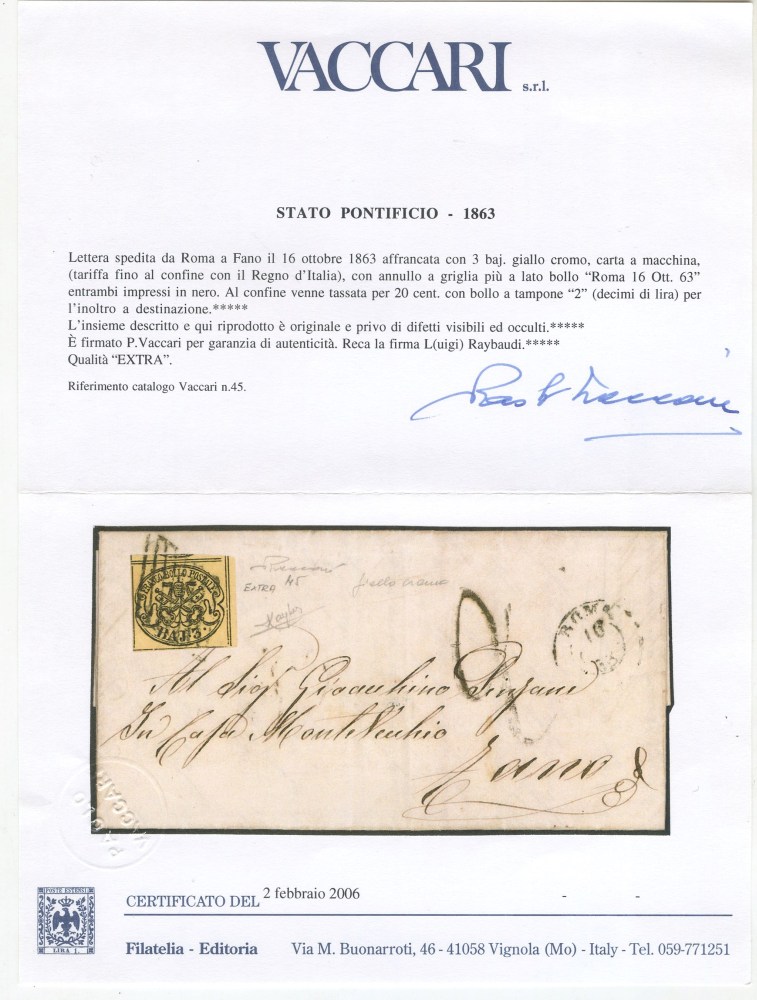 VACCARI s.r.l.
STATO PONTIFICIO - 1863
Lettera spedita da Roma a Fano il 16 ottobre 1863 affrancata con 3 baj. giallo cromo, carta a macchina,
(tariffa fino al confine con il Regno d’Italia), con annullo a griglia più a lato bollo “Roma 16 Ott. 63”
entrambi impressi in nero. Al confine venne tassata per 20 cent. con bollo a tampone “2” (decimi di lira) per
l’inoltro a destinazione.*****
L’insieme descritto e qui riprodotto è originale e privo di difetti visibili ed occulti.*****
È firmato P.Vaccari per garanzia di autenticità. Reca la firma L(uigi) Raybaudi.*****
Qualità “EXTRA”.
Riferimento catalogo Vaccari n.45.
FRANCO BOLLO POSTALE
BAJ. 3.
EXTRA 45
giallo cromo
2
ROMA
16
63
Al Sigr. Gioacchino
In Casa Montevecchio
Fano
PAOLO VACCARI
POSTE ESTENSI
LIRA 1.
CERTIFICATO DEL 2 febbraio 2006 - -
Filatelia - Editoria Via M. Buonarroti, 46 - 41058 Vignola (Mo) - Italy - Tel. 059-771251